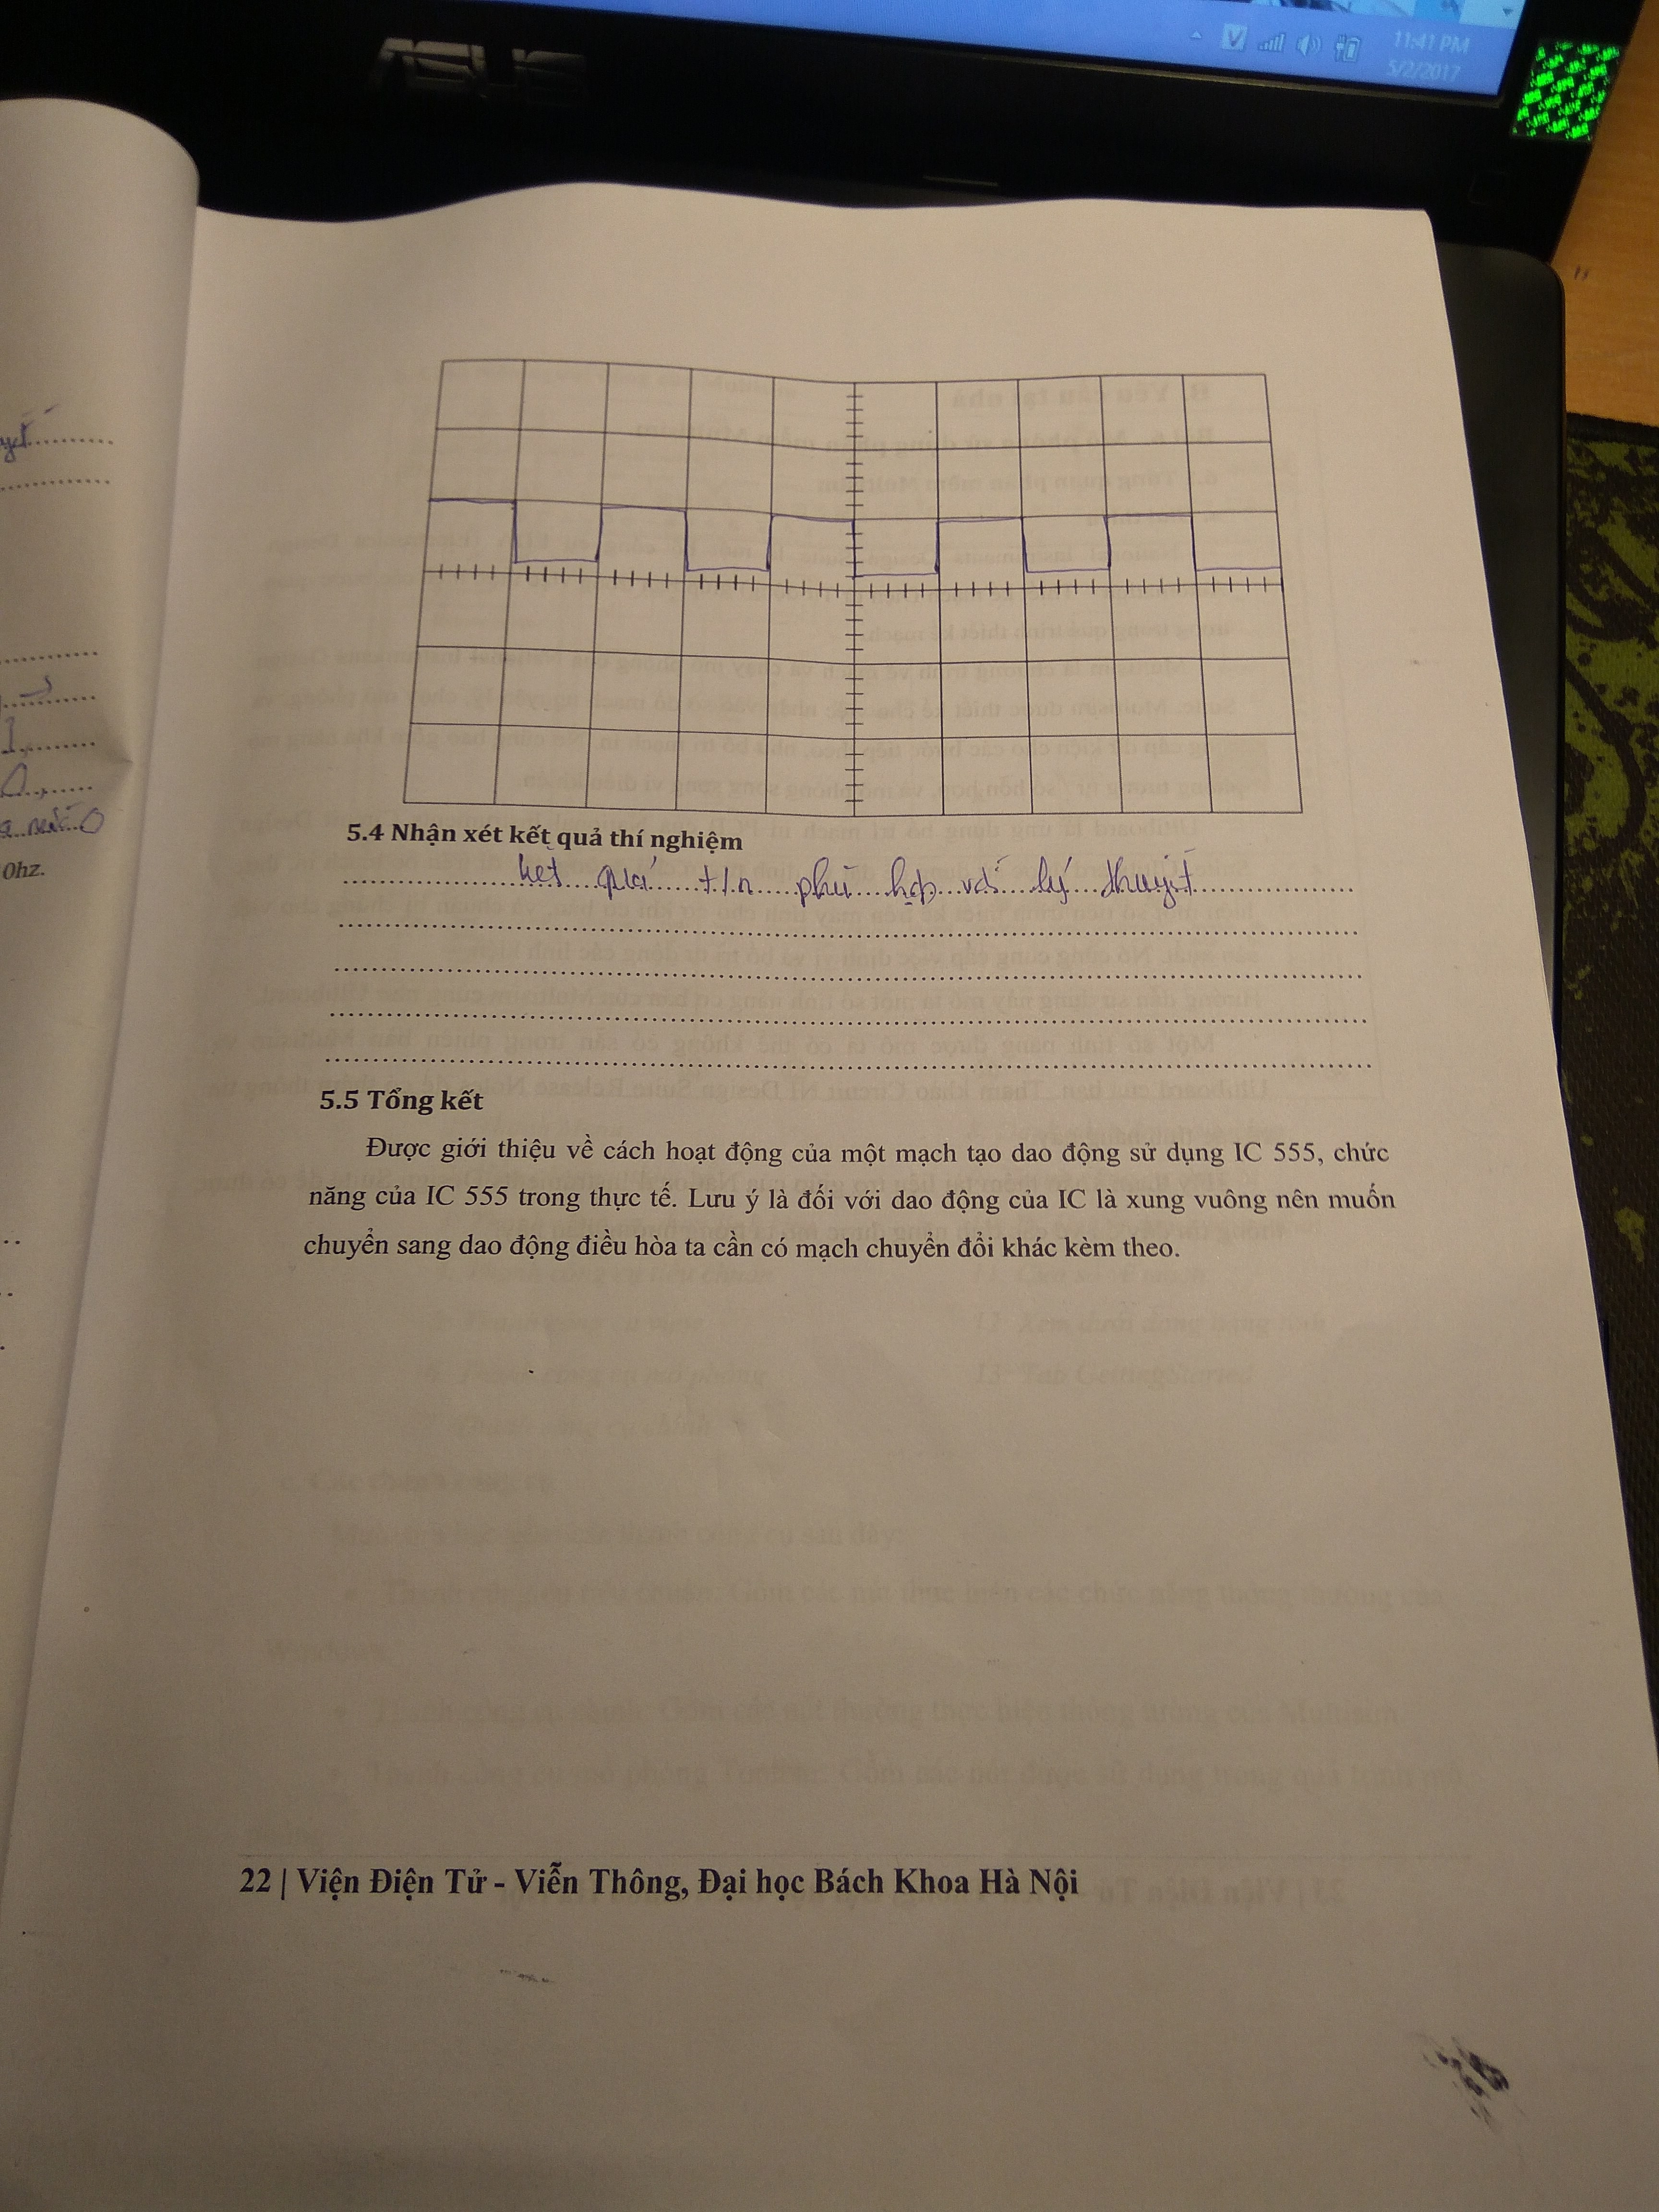 ASUS
11:41 PM
5/2/2017
0hz.
5.4 Nhận xét kết quả thí nghiệm
kết quả t/n phù hợp với lý thuyết
5.5 Tổng kết
Được giới thiệu về cách hoạt động của một mạch tạo dao động sử dụng IC 555, chức
năng của IC 555 trong thực tế. Lưu ý là đối với dao động của IC là xung vuông nên muốn
chuyển sang dao động điều hòa ta cần có mạch chuyển đổi khác kèm theo.
22 | Viện Điện Tử - Viễn Thông, Đại học Bách Khoa Hà Nội